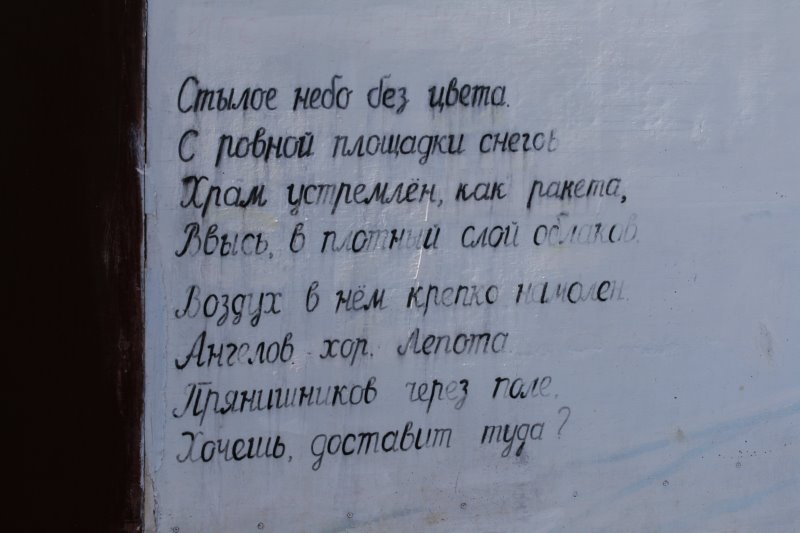 Стылое небо без цвета.
С ровной площадки снегов
Храм устремлён, как ракета,
Ввысь, в плотный слой облаков.
Воздух в нём крепко намолен.
Ангелов хор. Лепота.
Прянишников через поле,
Хочешь, доставит туда?